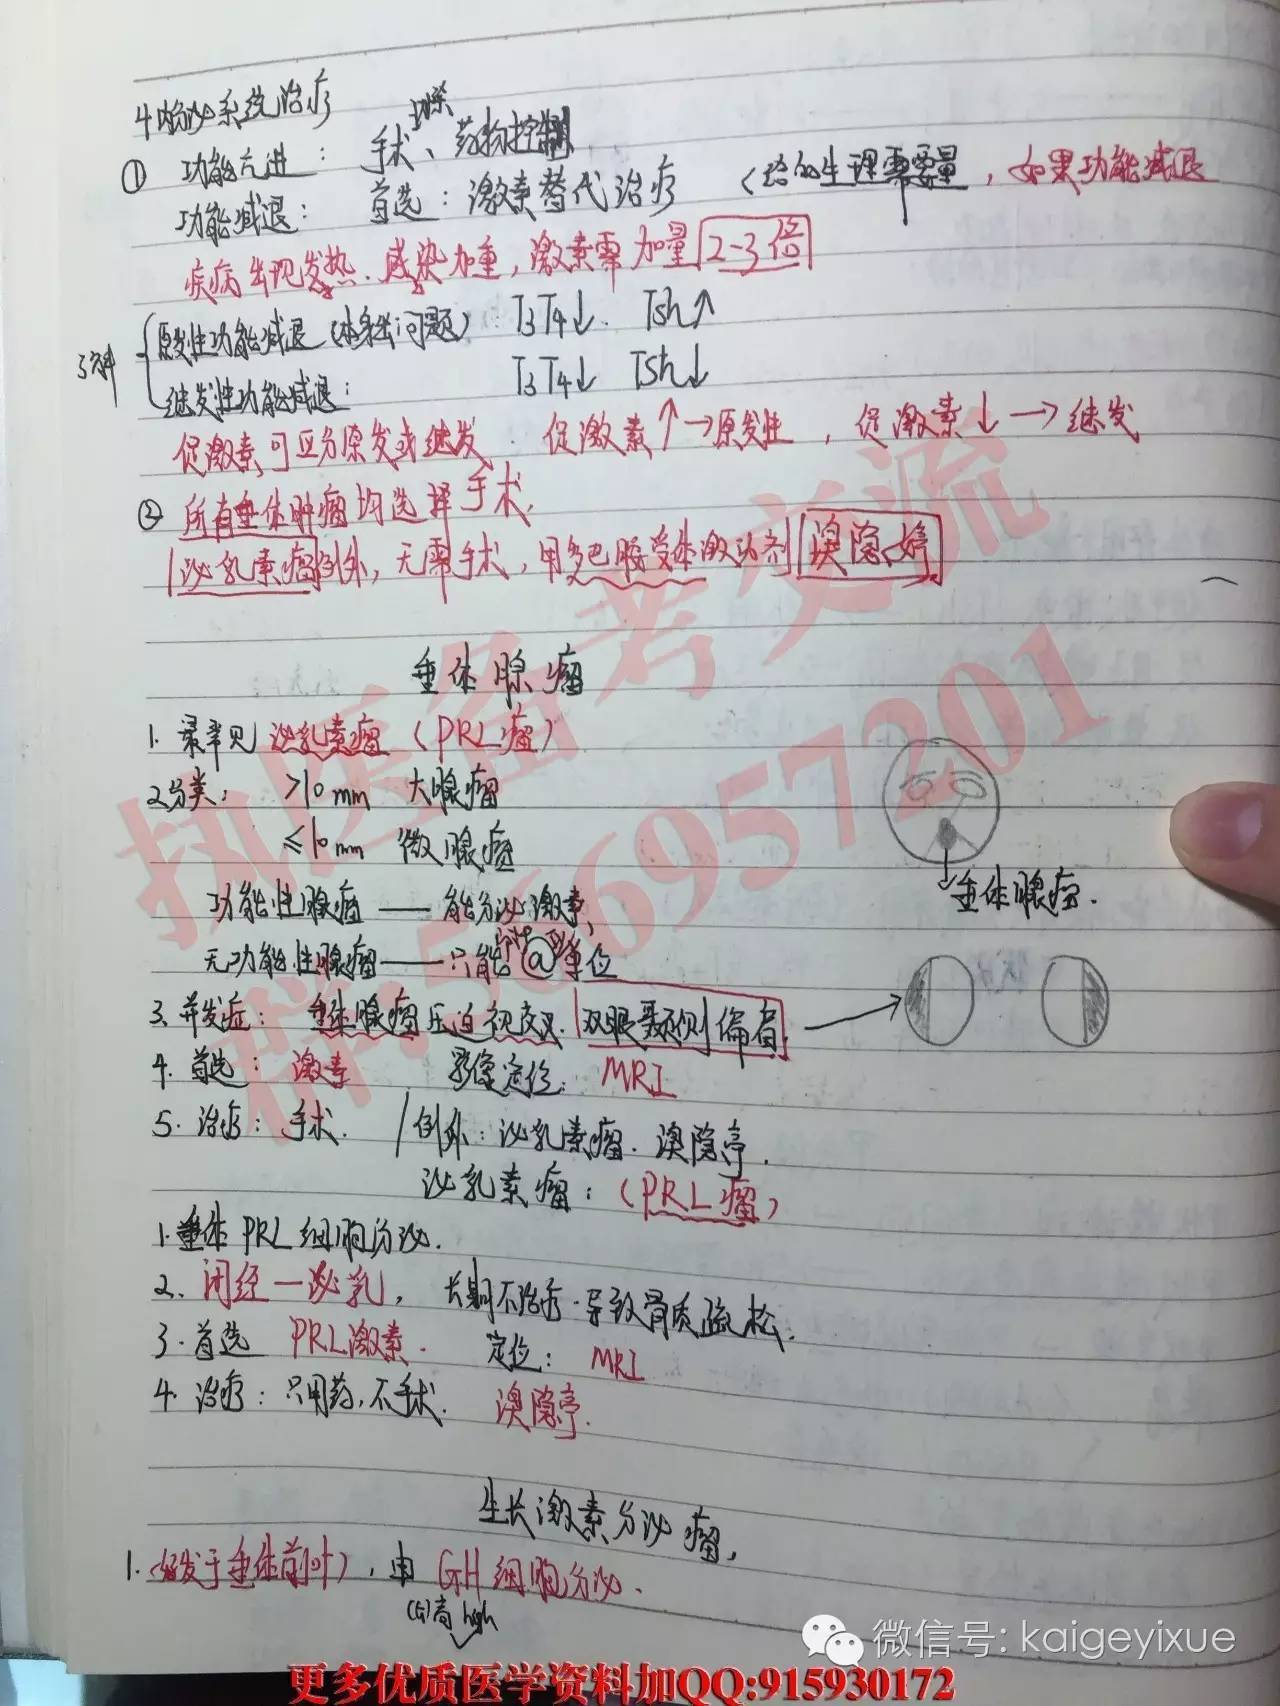 4 内分泌系统治疗
① 功能亢进： 手术切除、药物控制
功能减退： 首选：激素替代治疗 （给的生理需要量，如果功能减退
疾病出现发热、感染加重，激素需加量 2-3倍
了解 原发性功能减退（本身出问题） T3T4↓. Tsh↑
继发性功能减退： T3T4↓ Tsh↓
促激素可区分原发或继发. 促激素↑→原发性，促激素↓→继发
② 所有垂体肿瘤均选择手术.
泌乳素瘤例外，无需手术，用多巴胺受体激动剂 溴隐婷
垂体腺瘤
1. 最常见 泌乳素瘤（PRL瘤）
2分类： >10mm 大腺瘤
≤10mm 微腺瘤
垂体腺瘤.
功能性腺瘤 —— 能分泌激素,
无功能性腺瘤——只能 单位
3. 并发症： 垂体腺瘤压迫视交叉. 双眼颞侧偏盲
4. 首选： 激素 影像定位： MRI
5. 治疗：手术. / 例外：泌乳素瘤. 溴隐亭.
泌乳素瘤：（PRL瘤）
1.垂体PRL细胞分泌.
2. 闭经—泌乳， 长期不治疗.导致骨质疏松.
3.首选 PRL激素. 定位： MRI
4. 治疗：只用药,不手术. 溴隐亭.
生长激素分泌瘤,
1.（好发于垂体前叶），由 GH细胞分泌.
(G)高 high
执医备考交流
群:556957201
微信号: kaigeyixue
更多优质医学资料加QQ:915930172